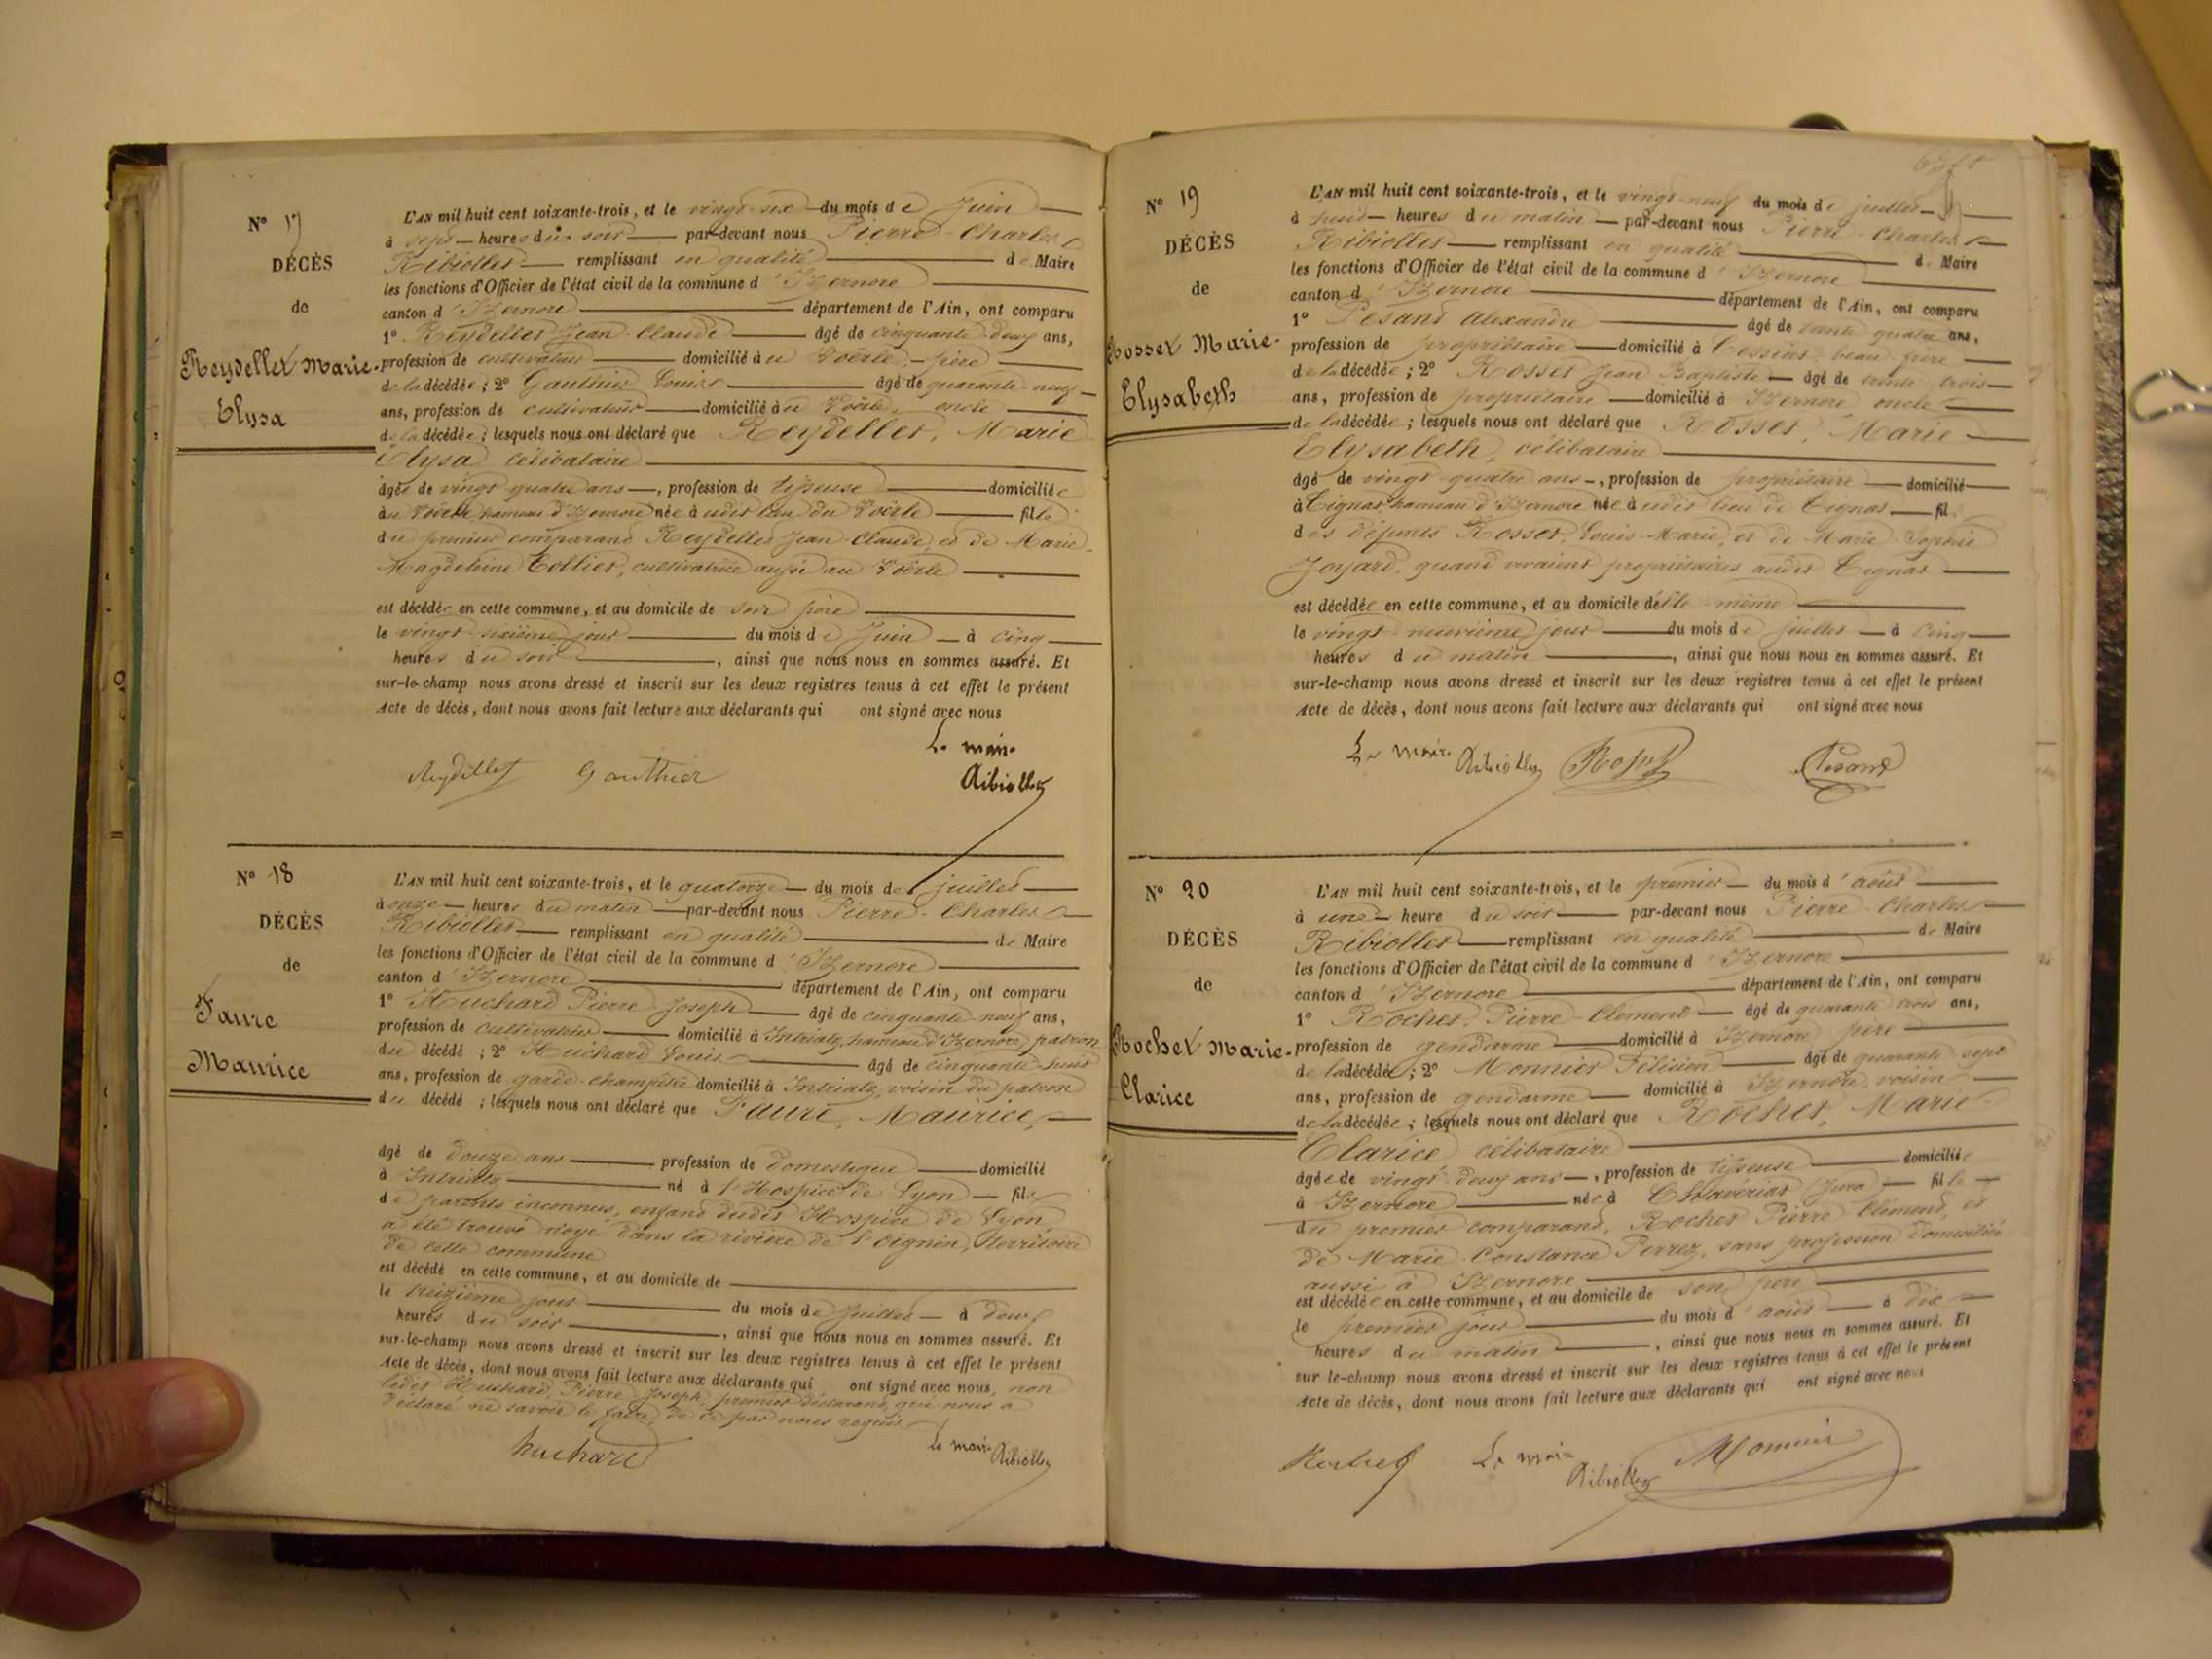 N° 17
DÉCÈS
de
Reydellet Marie-
Elysa
L'AN mil huit cent soixante-trois, et le vingt-six du mois de Juin
à sept heures du soir par-devant nous Pierre-Charles
Ribiollet remplissant en qualité de Maire
les fonctions d'Officier de l'état civil de la commune d'Izernore
canton d'Izernore département de l'Ain, ont comparu
1° Reydellet Jean-Claude âgé de cinquante-deux ans,
profession de cultivateur domicilié au Voërle, père
de la décédée; 2° Gauthier Louis âgé de quarante-neuf
ans, profession de cultivateur domicilié au Voërle, oncle
de la décédée; lesquels nous ont déclaré que Reydellet, Marie
Elysa célibataire
âgée de vingt-quatre ans, profession de tisseuse domiciliée
au Voërle, hameau d'Izernore née audit lieu du Voërle fille
du premier comparant Reydellet Jean-Claude, et de Marie-
Magdeleine Tollier, cultivatrice aussi au Voërle
est décédée en cette commune, et au domicile de son père
le vingt-sixième jour du mois de Juin à cinq
heures du soir, ainsi que nous nous en sommes assuré. Et
sur-le-champ nous avons dressé et inscrit sur les deux registres tenus à cet effet le présent
Acte de décès, dont nous avons fait lecture aux déclarants qui ont signé avec nous
Reydellet Gauthier Le maire
Ribiollet
N° 18
DÉCÈS
de
Faure
Maurice
L'AN mil huit cent soixante-trois, et le quatorze du mois de juillet
à onze heures du matin par-devant nous Pierre-Charles
Ribiollet remplissant en qualité de Maire
les fonctions d'Officier de l'état civil de la commune d'Izernore
canton d'Izernore département de l'Ain, ont comparu
1° Huchard Pierre-Joseph âgé de cinquante-neuf ans,
profession de cultivateur domicilié à Intriatz, hameau d'Izernore, patron
du décédé; 2° Huchard Louis âgé de cinquante-huit
ans, profession de garde-champêtre domicilié à Intriatz, voisin du patron
du décédé; lesquels nous ont déclaré que Faure, Maurice,
âgé de douze ans profession de domestique domicilié
à Intriatz né à l'Hospice de Lyon fils
de parents inconnus, enfant dudit Hospice de Lyon,
a été trouvé noyé dans la rivière de l'Oignin, territoire
de cette commune
est décédé en cette commune, et au domicile de
le treizième jour du mois de Juillet à deux
heures du soir, ainsi que nous nous en sommes assuré. Et
sur-le-champ nous avons dressé et inscrit sur les deux registres tenus à cet effet le présent
Acte de décès, dont nous avons fait lecture aux déclarants qui ont signé avec nous, non
ledit Huchard Pierre-Joseph premier déclarant, qui nous a
déclaré ne savoir le faire, de ce par nous requis
huchard le maire Ribiollet
N° 19
DÉCÈS
de
Rosset Marie-
Elysabeth
L'AN mil huit cent soixante-trois, et le vingt-neuf du mois de juillet
à huit heures du matin par-devant nous Pierre-Charles
Ribiollet remplissant en qualité de Maire
les fonctions d'Officier de l'état civil de la commune d'Izernore
canton d'Izernore département de l'Ain, ont comparu
1° Pesant Alexandre âgé de trente-quatre ans,
profession de propriétaire domicilié à Cessiat, beau-frère
de la décédée; 2° Rosset Jean Baptiste âgé de trente-trois
ans, profession de propriétaire domicilié à Izernore oncle
de la décédée; lesquels nous ont déclaré que Rosset, Marie
Elysabeth, célibataire
âgé de vingt-quatre ans, profession de propriétaire domicilié
à Tignat, hameau d'Izernore née audit lieu de Tignat fil
des défunts Rosset, Louis-Marie, et de Marie-Sophie
Joyard, quand vivaient propriétaires audit Tignat
est décédée en cette commune, et au domicile d'elle-même
le vingt-neuvième jour du mois de juillet à cinq
heures du matin, ainsi que nous nous en sommes assuré. Et
sur-le-champ nous avons dressé et inscrit sur les deux registres tenus à cet effet le présent
Acte de décès, dont nous avons fait lecture aux déclarants qui ont signé avec nous
Le maire Ribiollet Rosset Pesant
N° 20
DÉCÈS
de
Rochet Marie-
Clarice
L'AN mil huit cent soixante-trois, et le premier du mois d'août
à une heure du soir par-devant nous Pierre-Charles
Ribiollet remplissant en qualité de Maire
les fonctions d'Officier de l'état civil de la commune d'Izernore
canton d'Izernore département de l'Ain, ont comparu
1° Rochet, Pierre-Clément âgé de quarante-trois ans,
profession de gendarme domicilié à Izernore père
de la décédée; 2° Monnier Félicien âgé de quarante-sept
ans, profession de gendarme domicilié à Izernore, voisin
de la décédée; lesquels nous ont déclaré que Rochet, Marie
Clarice célibataire
âgée de vingt-deux ans, profession de tisseuse domiciliée
à Izernore née à Chavériat (Jura) fille
du premier comparant, Rochet Pierre Clément, et
de Marie-Constance Perrez, sans profession domiciliés
aussi à Izernore
est décédée en cette commune, et au domicile de son père
le premier jour du mois d'août à dix
heures du matin, ainsi que nous nous en sommes assuré. Et
sur le-champ nous avons dressé et inscrit sur les deux registres tenus à cet effet le présent
Acte de décès, dont nous avons fait lecture aux déclarants qui ont signé avec nous
Rochet Le maire Ribiollet Monnier